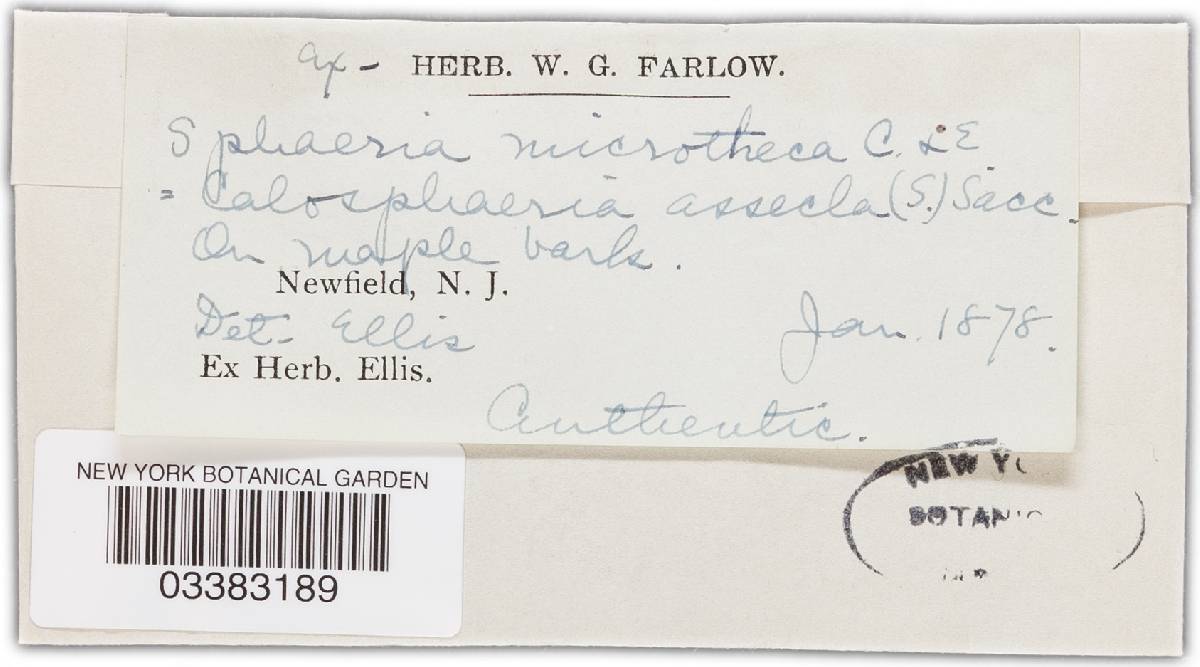 ex - HERB. W. G. FARLOW.
Sphaeria microtheca C. & E.
= Calosphaeria assecla (S.) Sacc.
On maple bark.
Newfield, N. J.
Det. Ellis
Jan. 1878.
Ex Herb. Ellis.
Authentic.
NEW YORK BOTANICAL GARDEN
03383189
NEW YO
BOTANIC